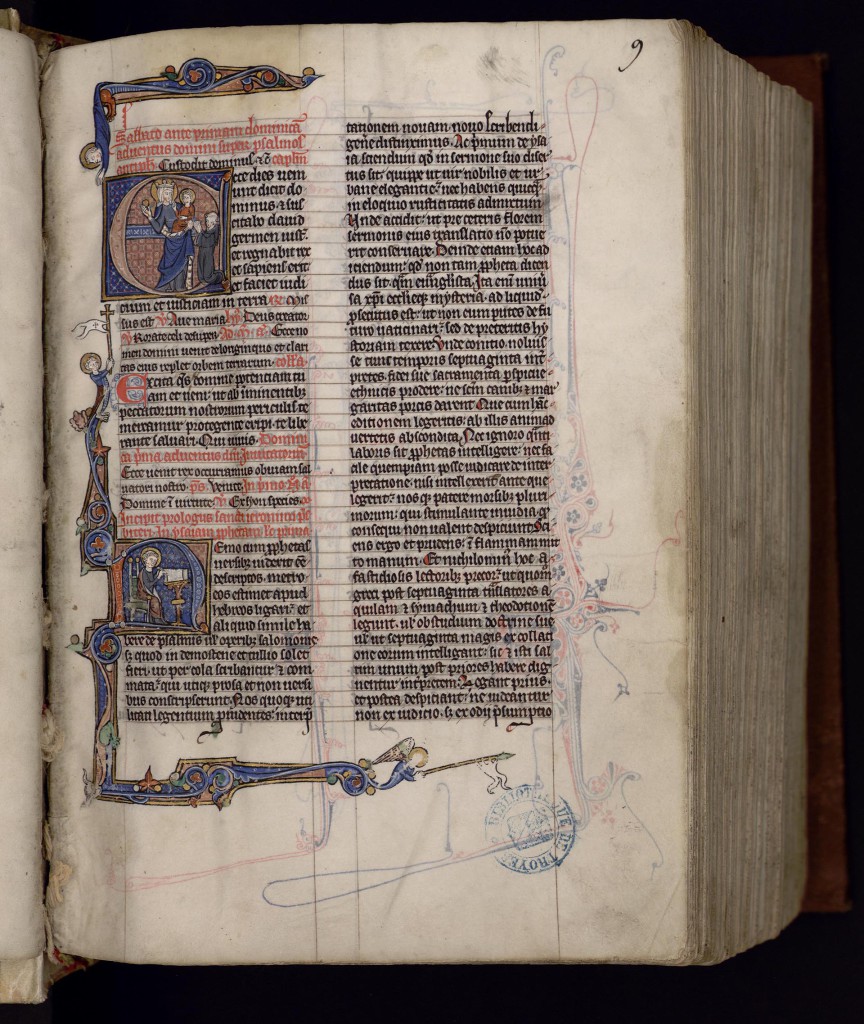 9
Sabbato ante primam dominicā
aduentus domini super psalmos
antiph̄. Custodit dominus. & c̄ caplm̄
Ecce dies ueni
unt dicit do
minus. & sus
citabo dauid
germen iust̄.
et regnabit rex
et sapiens erit
et faciet iudi
cium et iusticiam in terra R̄ Mis
sus est V̄ Aue maria hȳ Deus creator
V̄ Rorate celi desuper Ecce no
men domini uenit de longinquo et clari
tas eius replet orbem terrarum. coll̄a
Excita q̄s domine potenciam tu
am et ueni: ut ab īminentibꝫ
peccatorum nostrorum periculis te
mereamur protegente eripi. te libe
rante saluari. Qui uiuis. Domini
ca p̄ma aduentus dn̄i Inuitatoriū
Ecce uenit rex occuramus obuiam sal
uatori nostro p̄s. Venite. In p̄mo
Domine ī uirtute. V̄ Ex syon species
Incipit prologus sancti ieronimi p̄b
biteri. In ysaiam pphetam lc̄ prima
Nemo cum pphetas
uersibꝫ uiderit eē̄
descriptos. metro
eos estimet apud
hebreos ligari. et
aliquid simile ha
bere de psalmis ul̄ operibꝫ salomonis
sꝫ quod in demostene et tullio solet
fieri. ut per cola scribantur & com
mata. qui utiqꝫ prosa et non uersi
bus conscripserunt. Nos quoqꝫ uti
litati legentium prudentes: interp̄
tationem nouam. nouo scribendi
gene distinximus. Ac p̄mum de ysa
ia sciendum qd̄ in sermone suo diser
tus sit. quippe ut uir nobilis et ur
bane elegantie. nec habens quicqꝫ
in eloquio rusticitatis admixtum
Unde accidit: ut pre ceteris florem
sermonis eius translatio nō potue
rit conseruare. Deinde etiam hoc ad
iciendum: qd̄ non tam ppheta dicen
dus sit. qm̄ euuḡlista. Ita enī uniu
sa xp̄i ecclieqꝫ mysteria. ad liquid
psecutus est: ut non eum putes de fu
turo uaticinari. sed de preteritis hy
storiam texere. Unde conicio noluis
se tunc temporis septuaginta int̄
pretes. fidei sue sacramenta pspicue
ethnicis prodere: ne scm̄ canibꝫ & mar
garitas porcis darent. Que cum hāc
editionem legeritis: ab illis animad
uertetis abscondita. Nec ignoro quāti
laboris sit pphetas intelligere: nec fa
cile quempiam posse iudicare de inter
pretatione: nisi intellexerit ante que
legerit: nos qꝫ patere morsibꝫ pluri
morum: qui stimulante inuidia. qd̄
consequi non ualent despiciunt Sci
ens ergo et prudens: ī flammam mit
to manum. Et nichilominꝰ hoc a
fastidiosis lectoribꝫ precor: ut quom̄
greci post septuaginta trāslatores a
quilam & symachum & theodotionē
legunt. ul̄ ob studium doctrine sue
ul̄ ut septuaginta magis ex collati
one eorum intelligant: sic & isti sal
tim unum post priores habere dig
nentur int̄pretem. Legant prius.
et postea despiciant: ne uideantur
non ex iudicio. sꝫ ex odii p̄sumptio
BIBLIOTHEQUE DE TROYES